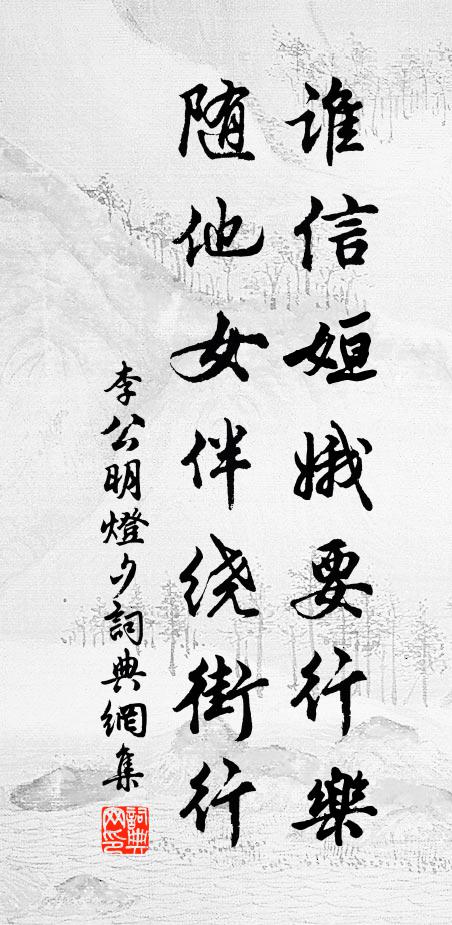 谁信姮娥要行樂
随他女伴绕街行
李公明燈夕詞典網集
詞典网印